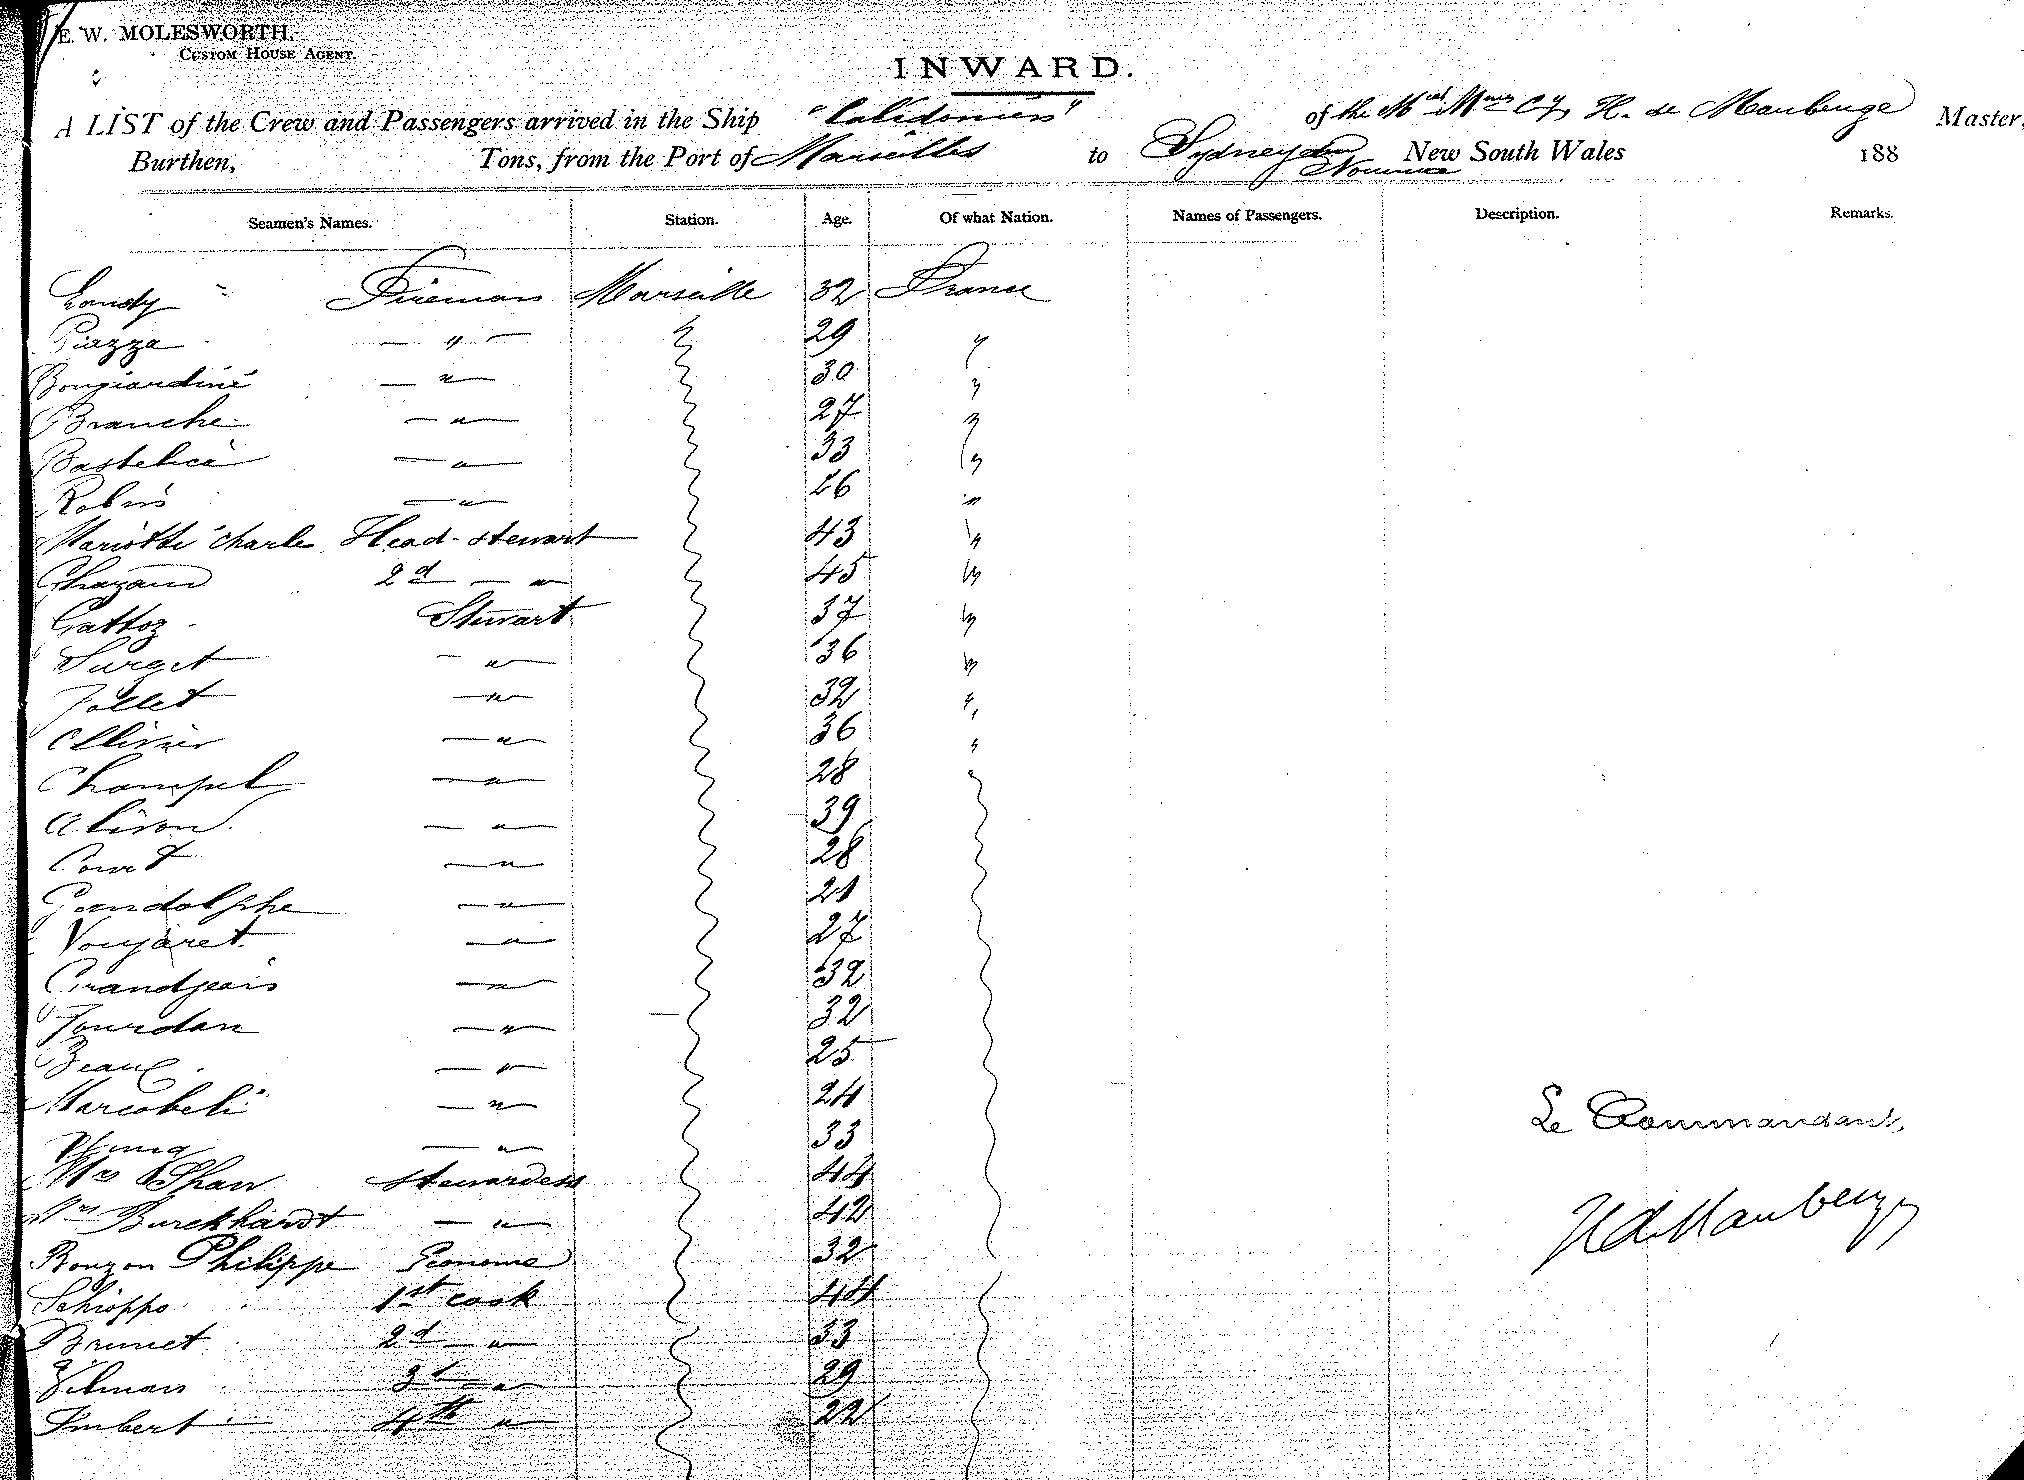 E. W. MOLESWORTH.
CUSTOM HOUSE AGENT.
INWARD.
A LIST of the Crew and Passengers arrived in the Ship "Calédonien" of the Mries Mmes Cy H. de Maubeuge Master,
Burthen, Tons, from the Port of Marseilles to Sydney and Noumea New South Wales 188
Seamen's Names. Station. Age. Of what Nation. Names of Passengers. Description. Remarks.
Landy " Fireman Marseille 32 France
Piazza — " — " 29 "
Bongiardini — " — 30 "
Branche — " — 27 "
Bastelica — " — 33 "
Robin — " — 26 "
Mariotti Charle Head-stewart 43 "
Chazaud 2d — " — 45 "
Gattoz Stewart 37 "
Surget — " — 36 "
Jollet — " — 32 "
Ollivier — " — 36 "
Champel — " — 28 "
Alison — " — 39
Court — " — 28
Gandolphe — " — 21
Voujaret — " — 27
Grandjean — " — 32
Jourdan — " — 32
Beaux — " — 25
Marcobeli — " — 24
— " — 33
Mrs Shaw stewardess 44
Mrs Burckhardt — " — 42
Bonzon Philippe Econome 32
Schioppo 1st cook 44
Brunet 2d — " — 33
Vilman 3d — " — 29
Imbert 4th " — 22
Le Commandant,
H de Maubeuge